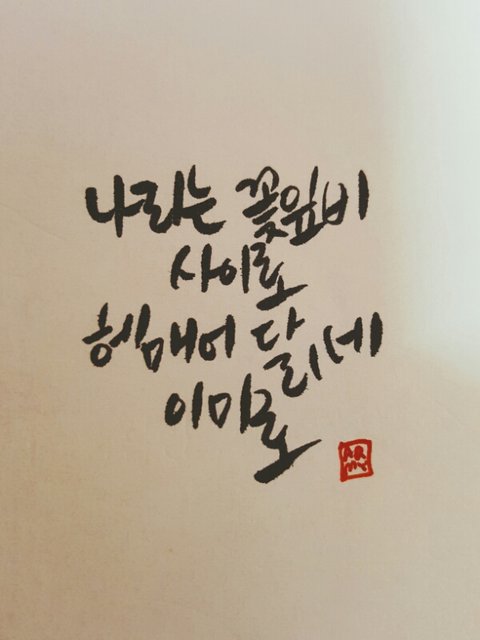 나리는 꽃잎비
사이로
헤매어 달리네
이미로
AR
MY